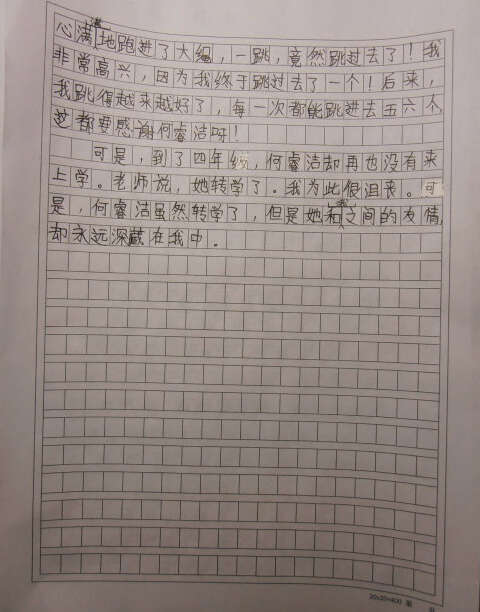 心满满地跑进了大绳，一跳，竟然跳过去了！我
非常高兴，因为我终于跳过去了一个！后来，
我跳得越来越好了，每一次都能跳进去五六个，
这都要感谢何睿洁呀！
可是，到了四年级，何睿洁却再也没有来
上学。老师说，她转学了。我为此很沮丧。可
是，何睿洁虽然转学了，但是她和我之间的友情，
却永远深藏在我中。
20×20=400